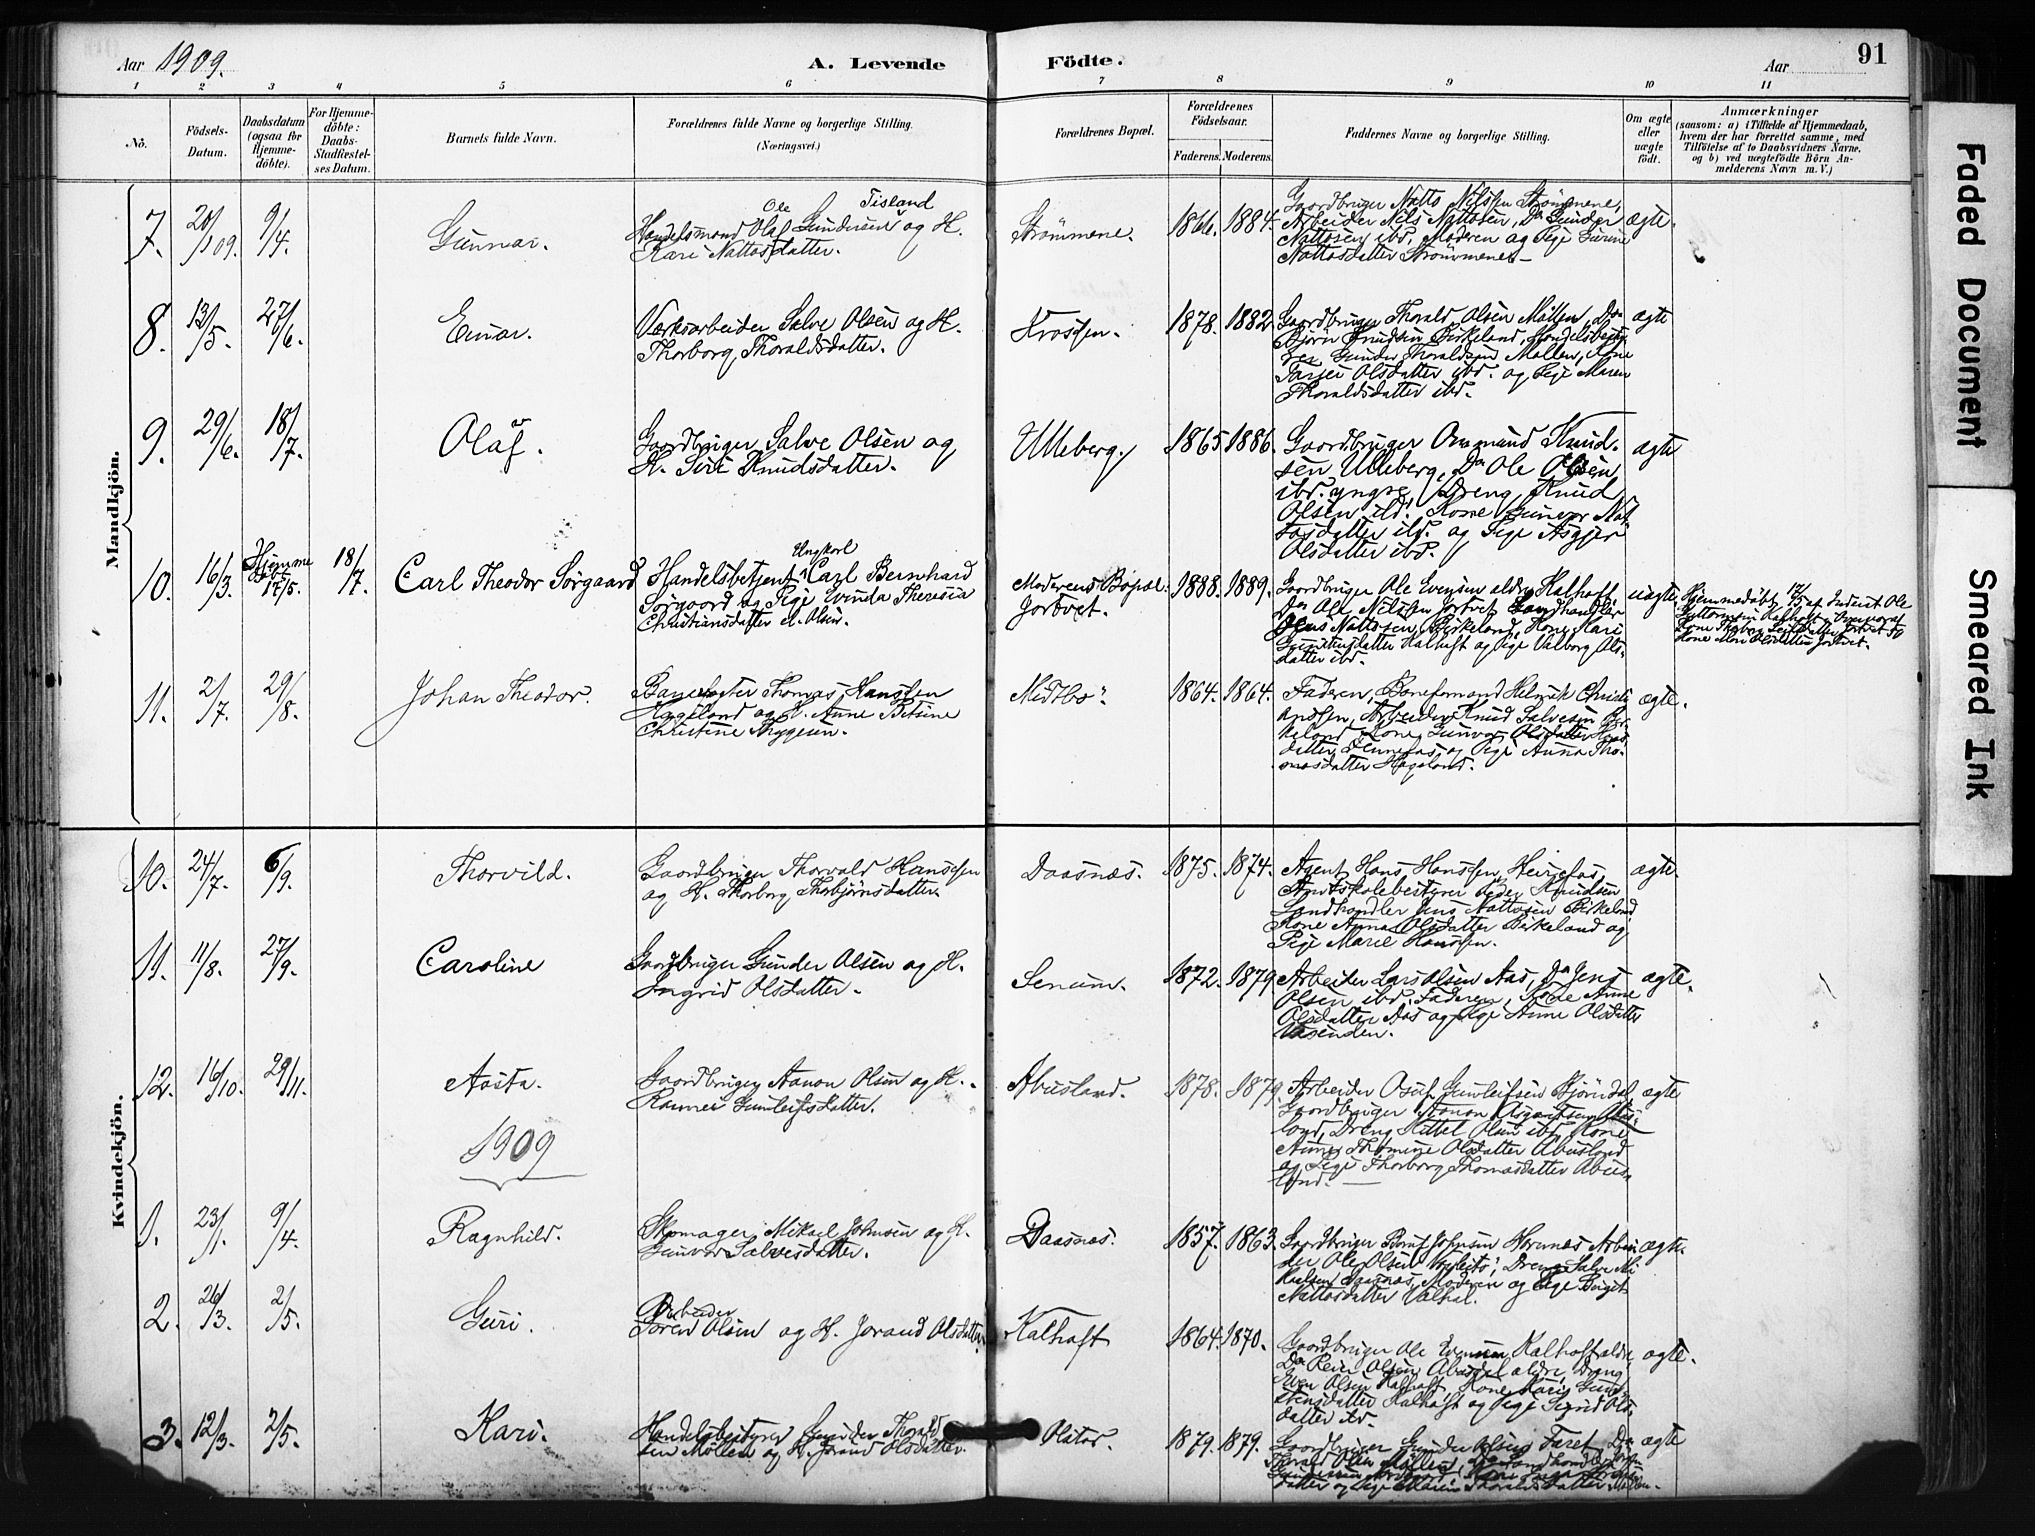 Aar 1909. A. Levende Födte. Aar 91
1 2 3 4 5 6 7 8 9 10 11
No.
Födsels-Datum.
Daabsdatum (ogsaa for Hjemmedöbte).
For Hjemmedöbte: Daabs-Stadfæstelses Datum.
Barnets fulde Navn.
Forældrenes fulde Navne og borgerlige Stilling. (Næringsvei.)
Forældrenes Bopæl.
Forældrenes Födselsaar.
Faderens. Moderens.
Faddernes Navne og borgerlige Stilling.
Om ægte eller uægte födt.
Anmærkninger
(saasom: a) i Tilfælde af Hjemmedaab, hvem der har forrettet samme, med Tilföielse af to Daabsvidners Navne, og b) ved uægtefödte Börn Anmelderens Navn m. V.)
Mandkjön.
7. 20/1 09. 9/4. Gunnar.
Ole Tisland
Handelsmand Olaf Gundersen og H.
Kari Nattosdatter.
Strømmene. 1866. 1884.
Gaardbruger Natto Nilsen Strømmene,
Arbeider Nils Nattosen, Do Gunder
Nattosen ibd, Moderen og Pige Gurine
Nattosdatter Strømmene.
ægte.
8. 13/5. 27/6. Einar.
Værksarbeider Salve Olsen og H.
Thorborg Thoraldsdatter.
Krossen. 1878. 1882
Gaardbruger Thorald Olsen Mollen, Do
Bjørn Knudsen Birkeland, Handelsbesty-
rer Gunder Thoraldsen Mollen, Kone
Tarjer Olsdatter ibd. og Pige Maren
Thoraldsdatter ibd.
ægte
9. 29/6. 18/7. Olaf.
Gaardbruger Salve Olsen og
H. Siri Knudsdatter.
Ulleberg. 1865 1886.
Gaardbruger Ommund Knud-
sen Ulleberg, Do Ole Olsen
ibd. yngre, Dreng Knud
Olsen ibd. Kone Gunvor Nat-
tosdatter ibd. og Pige Asgjer
Olsdatter ibd.
ægte
10. 16/3. Hjemmedøbt 17/5. 18/7. Carl Theodor Sørgaard
Ungkarl
Handelsbetjent Carl Bernhard
Sørgaard og Pige Evinda Theresia
Christiansdatter el. Olsen.
Moderens Bopæl: Jortvet. 1888. 1889.
Gaardbruger Ole Evensen ældre Kalhaft
Do Ole Nilsen Jortvet Landhandler
Jens Nattosen Birkeland, Kone Kari
Gunstensdatter Kalhaft og Pige Valborg Ols-
datter ibd.
uægte
Hjemmedøbt 17/5 af Inderst Ole
11. 2/7. 29/8. Johan Theodor.
Banevogter Thomas Hanssen
Hageland og H. Anne Betsine
Christine Thygesen.
Midtbø. 1864. 1864.
Faderen, Baneformand Helmik Christi-
ansen, Arbeider Knud Salvesen Bir-
keland, Kone Gunvor Olsdatter
og Pige Anna Tho-
masdatter Hageland.
ægte.
Kvindekjön.
10. 24/7. 6/9. Thorvild.
Gaardbruger Thorvald Hanssen
og H. Thorborg Thorbjørnsdatter
Daasnæs. 1875. 1874.
Agent Hans Hanssen Heirefos,
Amtskolebestyrer Peder Knudsen
Landhandler Jens Nattosen Birkeland
Kone Anna Olsdatter Birkeland og
Pige Marie Hanssen.
ægte.
11. 11/8. 27/9. Caroline
Gaardbruger Gunder Olsen og H.
Ingrid Olsdatter.
Senum. 1872. 1879
Arbeider Lars Olsen Aas, Do Jens
Olsen ibd. Faderen, Kone Anne
Olsdatter Aas og Pige Anne Olsdatter
Vasenden.
ægte.
12. 16/10. 29/11. Aasta.
Gaardbruger Aanon Olsen og H.
Gunleifsdatter.
Abusland. 1878. 1879.
Arbeider Osuf Gunleifsen Hjørndal
Gaardbruger Aanon Abus-
land, Dreng Kittel Olsen ibd, Kone
Anne Thomine Olsdatter Abusland
og Pige Thorborg Thomasdatter Abus-
land.
ægte
1909
1. 23/1. 9/4. Ragnhild.
Skomager Mikael Johnsen og H.
Gunvor Salvesdatter.
Daasnæs. 1857. 1863.
Gaardbruger Johnsen Arbei-
der Ole Olsen Dreng Salve Mi-
kaelsen Daasnæs, Moderen og Pige Birgit
Nattosdatter Valhal.
ægte.
2. 26/3. 2/5. Guri.
Arbeider
Søren Olsen og H. Joraand Olsdatter.
Kalhaft 1864. 1870.
Gaardbruger Ole Evensen Kalhaft ældre,
Do Reier Olsen ældre, Dreng
Even Olsen Kalhaft, Kone Kari Gun-
stensdatter Kalhaft og Pige Sigrid Ols-
datter ibd.
ægte.
3. 12/3. 2/5. Kari.
Handelsbestyrer Gunder Thorald-
sen Mollen og H. Joran Olsdatter.
1879. 1879.
Gaardbruger Gunder Olsen Faret, Do
Thorald Olsen Mollen, Landhandler
datter og Pige Maren Thoraldsdatter Mollen.
ægte
Faded Document
Smeared Ink